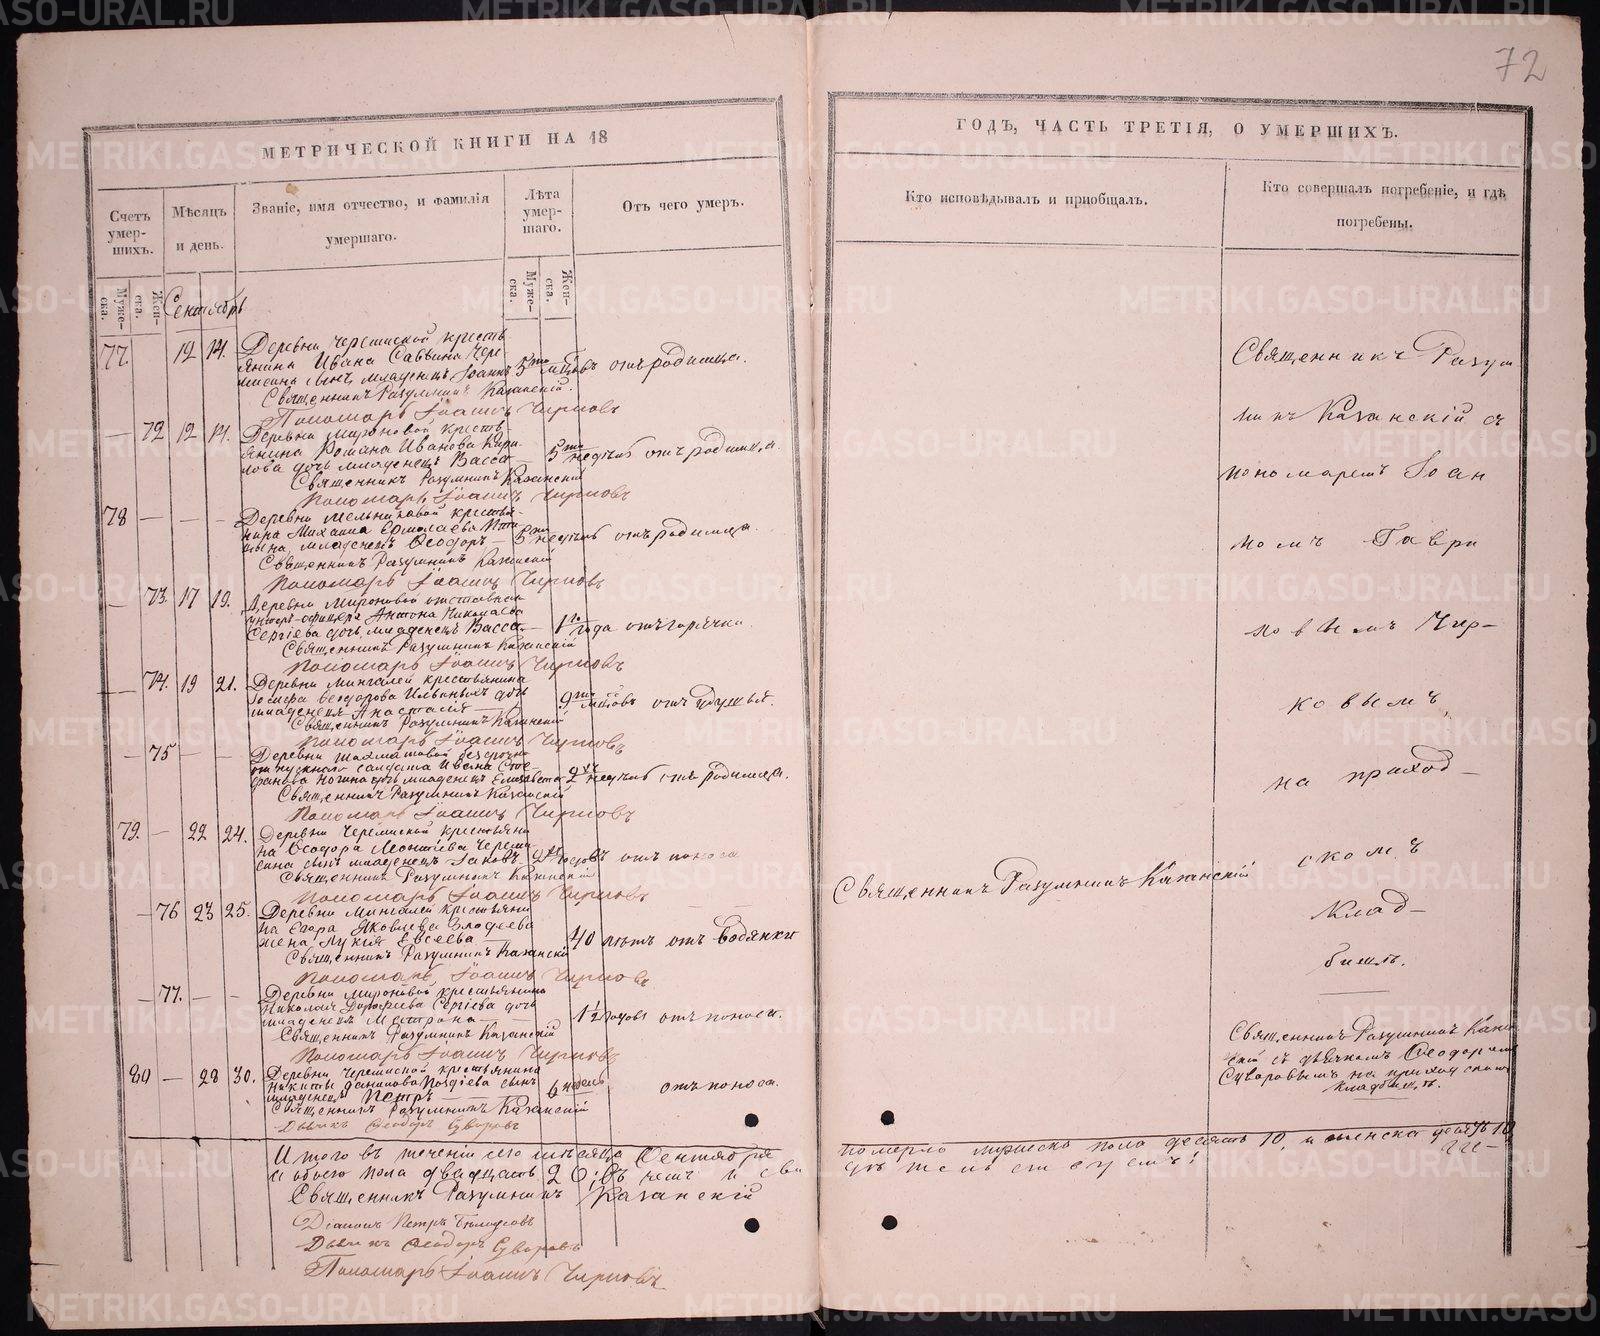 72
МЕТРИЧЕСКОЙ КНИГИ НА 18
Счетъ умер-шихъ.
Мѣсяцъ и день.
Званіе, имя отчество, и фамилія
умершаго.
Лѣта умер-шаго.
Отъ чего умеръ.
Муже-ска.
Жен-ска.
Муже-ска.
Жен-ска.
Сентябрь
77. 12 14. Деревни Черемиской кресть
янина Ивана Саввина Чере
мисина сынъ младенецъ Іоаннъ 5 мцовъ отъ родимца.
Священникъ Разумникъ Казанскій.
Пономарь Іоаннъ Чирковъ
— 72 12 14. Деревни Мироновой кресть
янина Романа Иванова
дочь младенецъ Васса — 5 недѣль отъ родимца.
Священникъ Разумникъ Казанскій
Пономарь Іоаннъ Чирковъ
78 — — — Деревни Мельниковой крестья
нина Михаила Ермолаева
младенецъ Ѳеодоръ — 5 недѣль отъ родимца.
Священникъ Разумникъ Казанскій
Пономарь Іоаннъ Чирковъ
— 73. 17 19. Деревни Мироновой отставнаго
унтеръ-офицера Антона Николаева
Сергіева дочь младенецъ Васса — 1 года отъ горячки.
Священникъ Разумникъ Казанскій
Пономарь Іоаннъ Чирковъ
— 74. 19 21. Деревни Мингалей крестьянина
Іосифа Ѳеодорова Ильиныхъ дочь
младенецъ Анастасія — 9 мцовъ отъ удушья.
Священникъ Разумникъ Казанскій
Пономарь Іоаннъ Чирковъ
— 75 — — Деревни безсрочно
отпускнаго солдата Ивана Сте
фанова дочь младенецъ Елисавета 2 недѣль отъ родимца.
Священникъ Разумникъ Казанскій
Пономарь Іоаннъ Чирковъ
79. — 22 24. Деревни Черемиской крестьяни
на Ѳеодора Леонтіева Череми
сина сынъ младенецъ Іаковъ — 2 годовъ отъ поноса
Священникъ Разумникъ Казанскій
Пономарь Іоаннъ Чирковъ
— 76 23 25. Деревни Мингалей крестьяни
на Егора Яковлева
жена Лукія Евсеева — 40 лѣтъ отъ водянки
Священникъ Разумникъ Казанскій
Пономарь Іоаннъ Чирковъ
— 77. — — Деревни Мироновой крестьянина
Николая Дорофеева Сергіева дочь
младенецъ Матрона — 1½ годовъ отъ поноса.
Священникъ Разумникъ Казанскій
Пономарь Іоаннъ Чирковъ
80 — 28 30. Деревни Черемиской крестьянина
Никиты Данилова сынъ
младенецъ Петръ — 6 недѣль отъ поноса.
Священникъ Разумникъ Казанскій
Дьячекъ Ѳеодоръ Суворовъ
Итого въ теченіи сего мѣсяца Сентября
и обоего пола двадцать 20;
Священникъ Разумникъ Казанскій
Діаконъ Петръ
Дьячекъ Ѳеодоръ Суворовъ
Пономарь Іоаннъ Чирковъ
ГОДЪ, ЧАСТЬ ТРЕТІЯ, О УМЕРШИХЪ.
Кто исповѣдывалъ и пріобщалъ.
Кто совершалъ погребеніе, и гдѣ
погребены.
Священникъ Разумникъ Казанскій
Священникъ Разум
никъ Казанскій съ
пономаремъ Іоан
номъ Гаври
ловымъ Чир-
ковымъ
на приход-
скомъ
клад-
бищѣ.
Священникъ Разумникъ Казан
скій съ дьячкомъ Ѳеодоромъ
Суворовымъ на приходскомъ
кладбищѣ.
померло мужеска пола десять 10, и женска десять 10